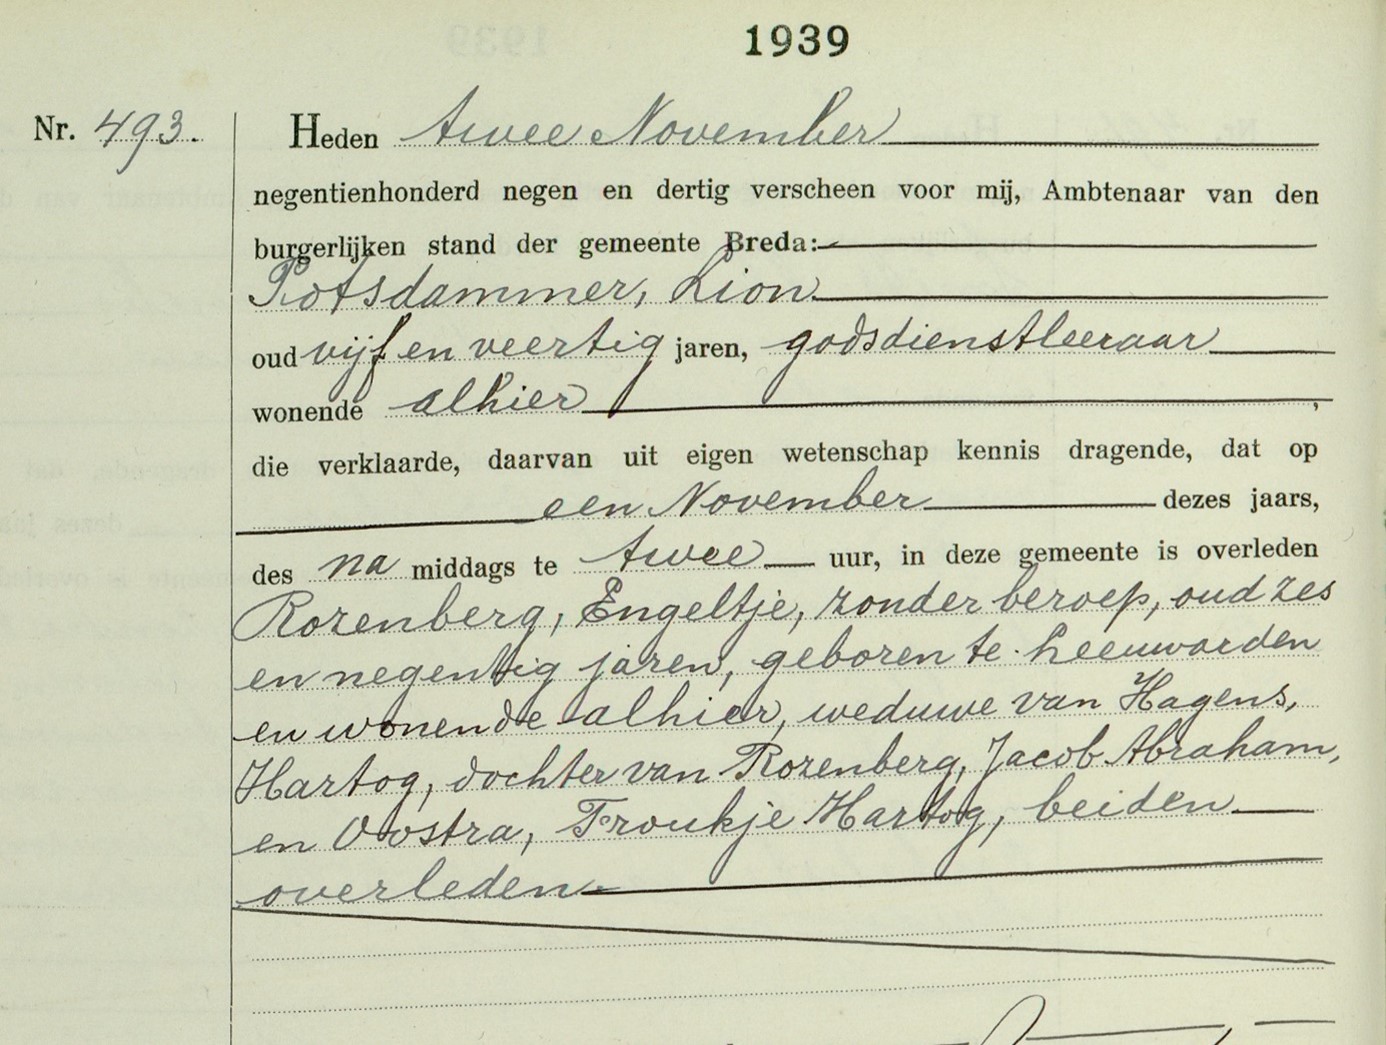 1939
Nr. 493.
Heden twee November
negentienhonderd negen en dertig verscheen voor mij, Ambtenaar van den
burgerlijken stand der gemeente Breda:
Potsdammer, Lion
oud vijf en veertig jaren, godsdienstleeraar
wonende alhier,
die verklaarde, daarvan uit eigen wetenschap kennis dragende, dat op
een November dezes jaars,
des na middags te twee uur, in deze gemeente is overleden
Rozenberg, Engeltje, zonder beroep, oud zes
en negentig jaren, geboren te Leeuwarden
en wonende alhier, weduwe van Hagens,
Hartog, dochter van Rozenberg, Jacob Abraham,
en Oostra, Froukje Hartog, beiden
overleden